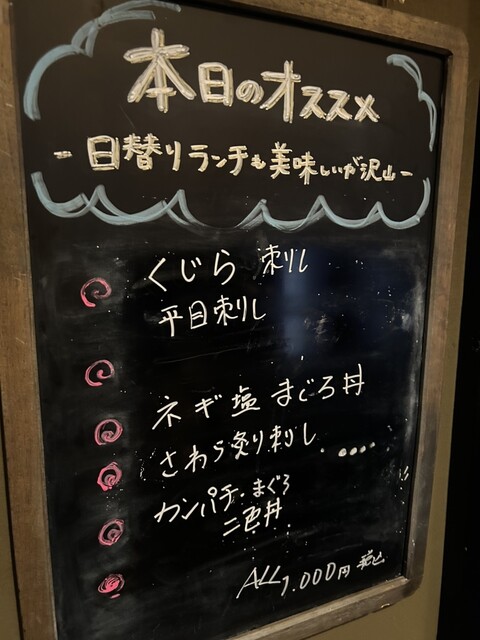 本日のオススメ
- 日替りランチも美味しいが沢山 -
くじら 刺し
平目刺し
ネギ塩 まぐろ丼
さわら炙り刺し
カンパチ・まぐろ
二色丼
ALL 1.000円 税込